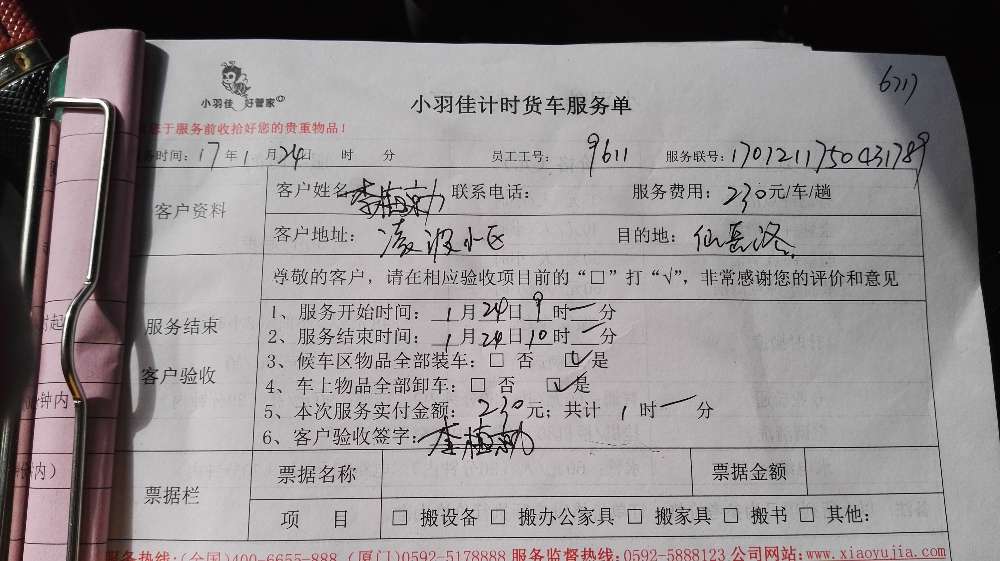 6717
小羽佳 好管家
小羽佳计时货车服务单
于服务前收拾好您的贵重物品！
务时间：17年1月24日 时 分 员工工号：9611 服务联号：1701211750431789
客户资料
客户姓名 联系电话： 服务费用：230元/车/趟
客户地址：凌波小区 目的地：仙岳路
尊敬的客户，请在相应验收项目前的“□”打“√”，非常感谢您的评价和意见
服务结束
客户验收
1、服务开始时间：1月24日9时一分
2、服务结束时间：1月24日10时一分
3、候车区物品全部装车：□ 否 ☑是
4、车上物品全部卸车：□ 否 ☑是
5、本次服务实付金额：230元；共计 1时一分
6、客户验收签字：
票据栏
票据名称 票据金额
项 目 □ 搬设备 □ 搬办公家具 □ 搬家具 □ 搬书 □ 其他：
服务热线：(全国)400-6655-888 (厦门)0592-5178888 服务监督热线：0592-5888123 公司网站：www.xiaoyujia.com
时起
钟内
内）